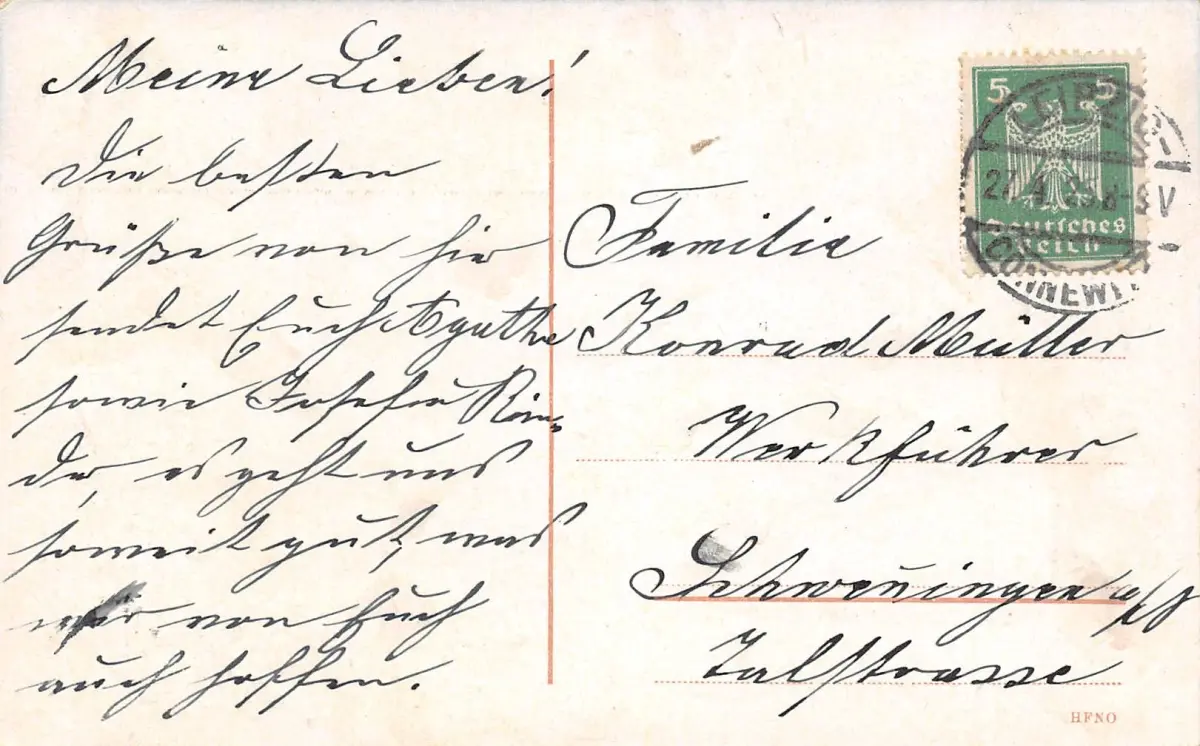 Meine Lieben!
Die besten
Grüße von hier
sendet Euch Agathe
sowie Josefen
de, es geht uns
soweit gut, was
wir von Euch
auch hoffen.
5 5
Deutsches
Reich
LEIPZIG
27.4.25. 8-9V
CONNEWITZ
Familie
Konrad Müller
Werkführer
Schwenningen a/N
Talstrasse
HFNO